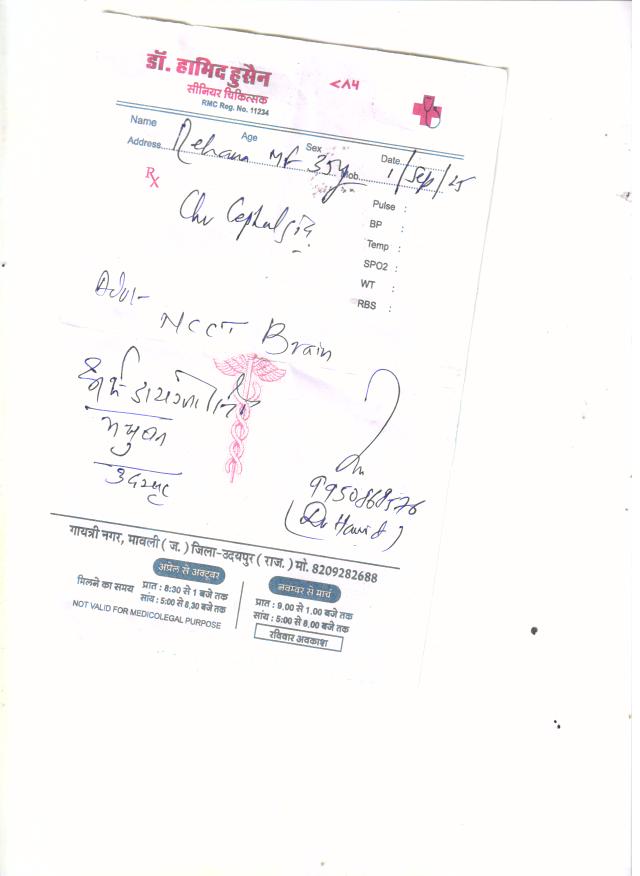 डॉ. हामिद हुसैन
सीनियर चिकित्सक
RMC Reg. No. 11234
Name Age Sex Date 1/Sep/25
Address Rehana 35y Mob.
Rx
Pulse :
BP :
Temp :
SPO2 :
WT :
RBS :
Adv-
NCCT Brain
(Dr Hamid)
गायत्री नगर, मावली ( ज. ) जिला-उदयपुर ( राज. ) मो. 8209282688
अप्रेल से अक्टूबर
मिलने का समय प्रात : 8:30 से 1 बजे तक
सांय : 5:00 से 8.30 बजे तक
NOT VALID FOR MEDICOLEGAL PURPOSE
नवम्बर से मार्च
प्रात : 9.00 से 1.00 बजे तक
सांय : 5:00 से 8.00 बजे तक
रविवार अवकाश